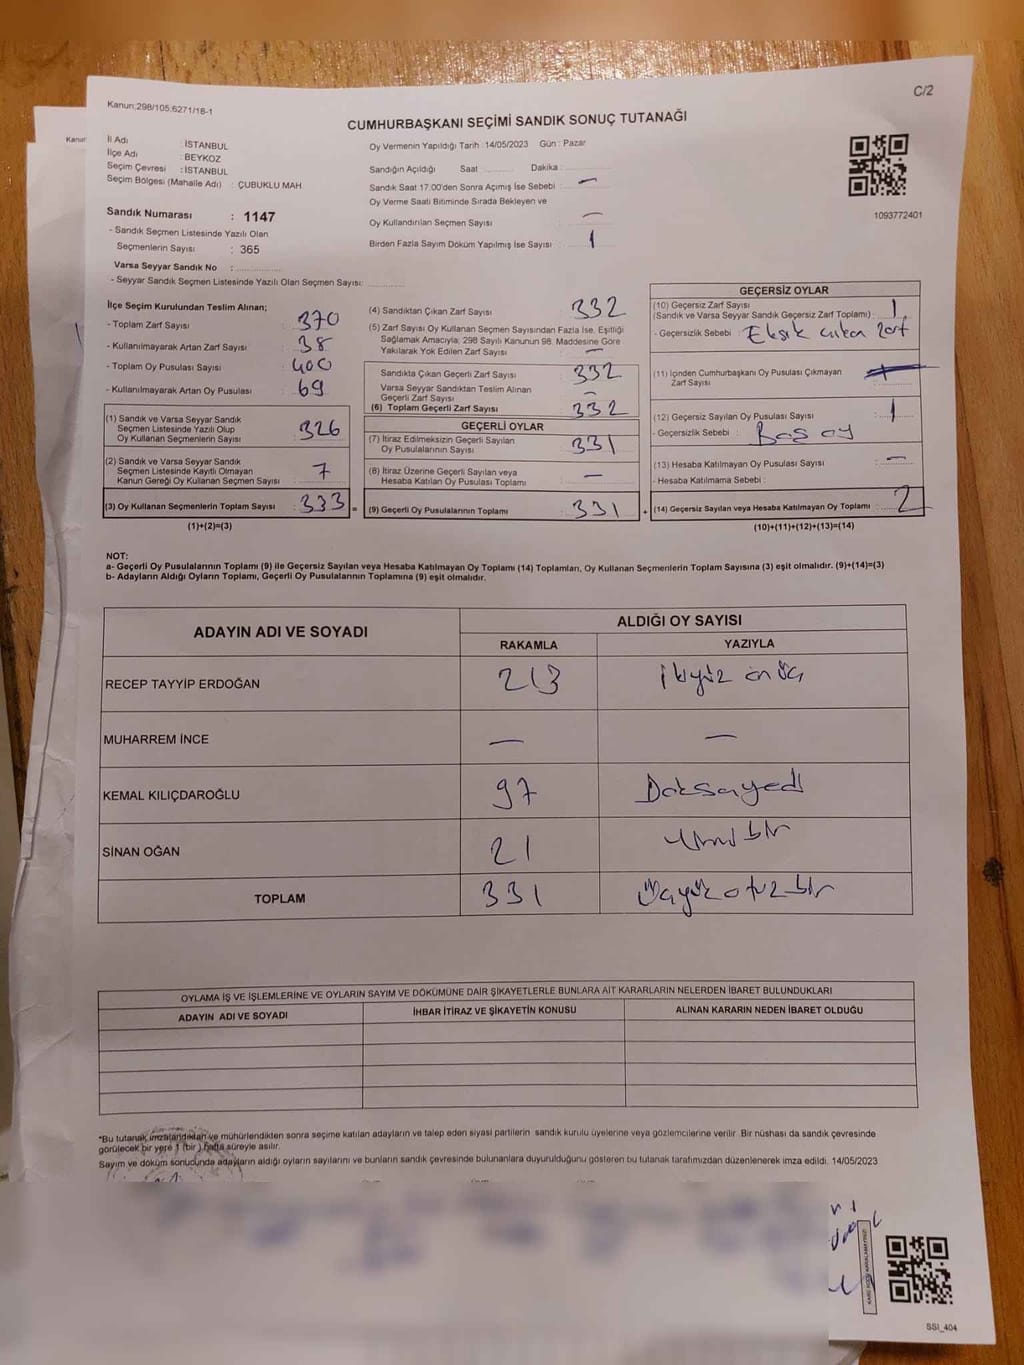 C/2
Kanun;298/105;6271/18-1
CUMHURBAŞKANI SEÇİMİ SANDIK SONUÇ TUTANAĞI
İl Adı : İSTANBUL
İlçe Adı : BEYKOZ
Seçim Çevresi : İSTANBUL
Seçim Bölgesi (Mahalle Adı) : ÇUBUKLU MAH.
Sandık Numarası : 1147
- Sandık Seçmen Listesinde Yazılı Olan
Seçmenlerin Sayısı : 365
Varsa Seyyar Sandık No :
- Seyyar Sandık Seçmen Listesinde Yazılı Olan Seçmen Sayısı:
Oy Vermenin Yapıldığı Tarih :14/05/2023 Gün : Pazar
Sandığın Açıldığı Saat Dakika
Sandık Saat 17.00'den Sonra Açımış İse Sebebi : —
Oy Verme Saati Bitiminde Sırada Bekleyen ve
Oy Kullandırılan Seçmen Sayısı : —
Birden Fazla Sayım Döküm Yapılmış İse Sayısı : 1
1093772401
İlçe Seçim Kurulundan Teslim Alınan;
- Toplam Zarf Sayısı : 370
- Kullanılmayarak Artan Zarf Sayısı : 38
- Toplam Oy Pusulası Sayısı : 400
- Kullanılmayarak Artan Oy Pusulası : 69
(1) Sandık ve Varsa Seyyar Sandık
Seçmen Listesinde Yazılı Olup
Oy Kullanan Seçmenlerin Sayısı : 326
(2) Sandık ve Varsa Seyyar Sandık
Seçmen Listesinde Kayıtlı Olmayan
Kanun Gereği Oy Kullanan Seçmen Sayısı : 7
(3) Oy Kullanan Seçmenlerin Toplam Sayısı : 333 =
(1)+(2)=(3)
(4) Sandıktan Çıkan Zarf Sayısı : 332
(5) Zarf Sayısı Oy Kullanan Seçmen Sayısından Fazla İse, Eşitliği
Sağlamak Amacıyla; 298 Sayılı Kanunun 98. Maddesine Göre
Yakılarak Yok Edilen Zarf Sayısı : —
Sandıkta Çıkan Geçerli Zarf Sayısı : 332
Varsa Seyyar Sandıktan Teslim Alınan
Geçerli Zarf Sayısı : —
(6) Toplam Geçerli Zarf Sayısı : 332
GEÇERLİ OYLAR
(7) İtiraz Edilmeksizin Geçerli Sayılan
Oy Pusulalarının Sayısı : 331
(8) İtiraz Üzerine Geçerli Sayılan veya
Hesaba Katılan Oy Pusulası Toplamı : —
(9) Geçerli Oy Pusulalarının Toplamı : 331 +
GEÇERSİZ OYLAR
(10) Geçersiz Zarf Sayısı
(Sandık ve Varsa Seyyar Sandık Geçersiz Zarf Toplamı) : 1
- Geçersizlik Sebebi : Eksik çıkan zarf
(11) İçinden Cumhurbaşkanı Oy Pusulası Çıkmayan
Zarf Sayısı
(12) Geçersiz Sayılan Oy Pusulası Sayısı : 1
- Geçersizlik Sebebi : Boş oy
(13) Hesaba Katılmayan Oy Pusulası Sayısı : —
- Hesaba Katılmama Sebebi :
(14) Geçersiz Sayılan veya Hesaba Katılmayan Oy Toplamı : 2
(10)+(11)+(12)+(13)=(14)
NOT:
a- Geçerli Oy Pusulalarının Toplamı (9) ile Geçersiz Sayılan veya Hesaba Katılmayan Oy Toplamı (14) Toplamları, Oy Kullanan Seçmenlerin Toplam Sayısına (3) eşit olmalıdır. (9)+(14)=(3)
b- Adayların Aldığı Oyların Toplamı, Geçerli Oy Pusulalarının Toplamına (9) eşit olmalıdır.
ADAYIN ADI VE SOYADI ALDIĞI OY SAYISI
RAKAMLA YAZIYLA
RECEP TAYYİP ERDOĞAN 213 ikiyüz onüç
MUHARREM İNCE — —
KEMAL KILIÇDAROĞLU 97 Doksanyedi
SİNAN OĞAN 21 Yirmi bir
TOPLAM 331 Üçyüz otuz bir
OYLAMA İŞ VE İŞLEMLERİNE VE OYLARIN SAYIM VE DÖKÜMÜNE DAİR ŞİKAYETLERLE BUNLARA AİT KARARLARIN NELERDEN İBARET BULUNDUKLARI
ADAYIN ADI VE SOYADI İHBAR İTİRAZ VE ŞİKAYETİN KONUSU ALINAN KARARIN NEDEN İBARET OLDUĞU
*Bu tutanak imzalandıktan ve mühürlendikten sonra seçime katılan adayların ve talep eden siyasi partilerin sandık kurulu üyelerine veya gözlemcilerine verilir. Bir nüshası da sandık çevresinde
görülecek bir yere 1 (bir) hafta süreyle asılır.
Sayım ve döküm sonucunda adayların aldığı oyların sayılarını ve bunların sandık çevresinde bulunanlara duyurulduğunu gösteren bu tutanak tarafımızdan düzenlenerek imza edildi. 14/05/2023
SSI_404